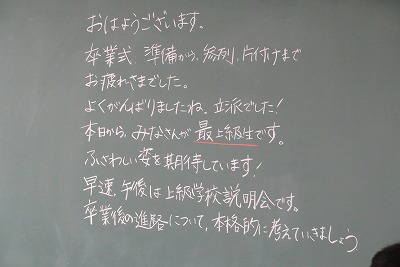 おはようございます。
卒業式、準備から、参列、片付けまで
お疲れさまでした。
よくがんばりましたね。立派でした!
本日から、みなさんが最上級生です。
ふさわしい姿を期待しています!
早速、午後は上級学校説明会です。
卒業後の進路について、本格的に考えていきましょう